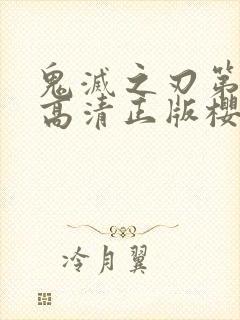 鬼滅之刃第
高清正版櫻
冷月翼